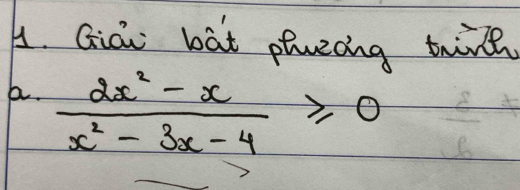 1. Giải bất phương trình
a. \frac{2x^2 - x}{x^2 - 3x - 4} \geq 0